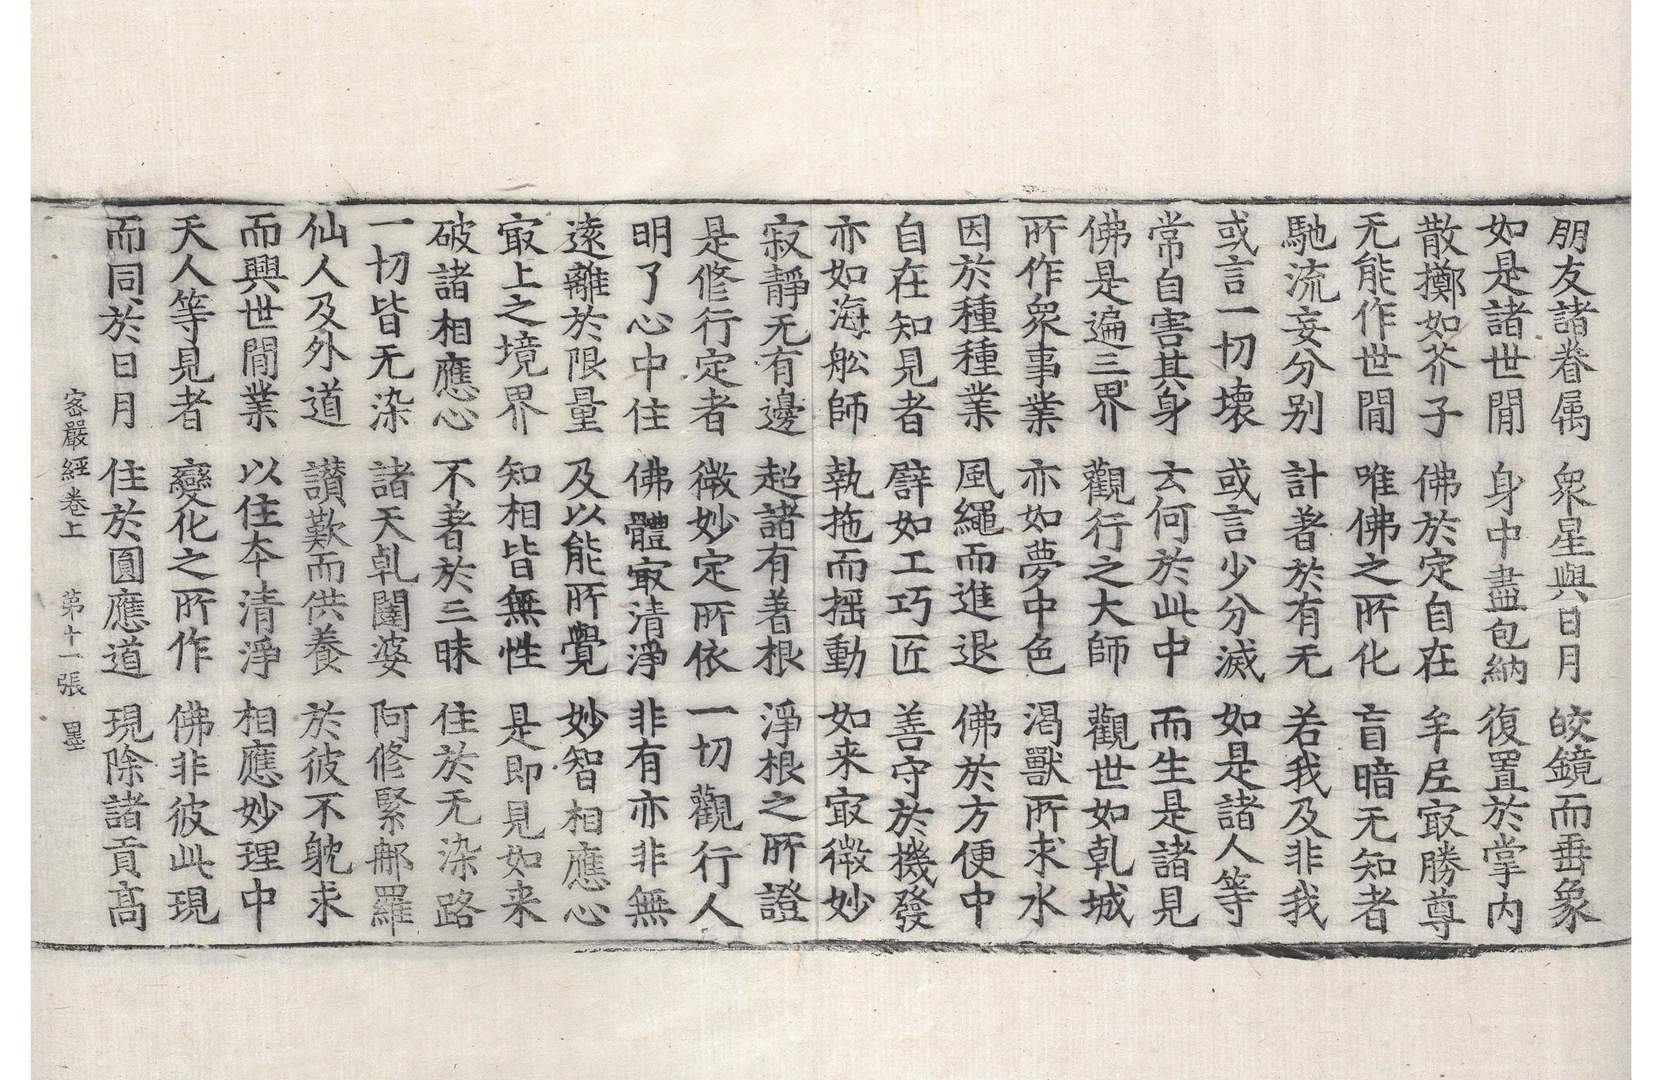 朋友諸眷属　衆星與日月　皎鏡而垂象
如是諸世閒　身中盡包納　復置於掌内
散擲如芥子　佛於定自在　牟尼㝡勝尊
无能作世閒　唯佛之所化　盲暗无知者
馳流妄分别　計著於有无　若我及非我
或言一切壞　或言少分滅　如是諸人等
常自害其身　云何於此中　而生是諸見
佛是遍三界　觀行之大師　觀世如乹城
所作衆事業　亦如夢中色　渴獸所求水
因於種種業　風繩而進退　佛於方便中
自在知見者　譬如工巧匠　善守於機發
亦如海舩師　執拖而揺動　如来㝡微妙
寂靜无有邊　超諸有著根　淨根之所證
是修行定者　微妙定所依　一切觀行人
明了心中住　佛體㝡清淨　非有亦非無
遠離於限量　及以能所覺　妙智相應心
㝡上之境界　知相皆無性　是即見如来
破諸相應心　不著於三昧　住於无染路
一切皆无染　諸天乹闥婆　阿修緊那羅
仙人及外道　讃歎而供養　於彼不躭求
而興世閒業　以住夲清淨　相應妙理中
天人等見者　變化之所作　佛非彼此現
而同於日月　住於圓應道　現除諸貢髙
密嚴經卷上　第十一張　墨